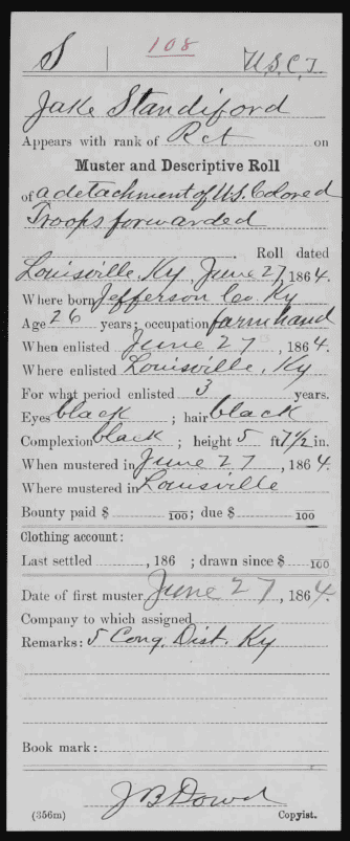 S | 108 U.S.C.T.
Jake Standiford
Appears with rank of Rct on
Muster and Descriptive Roll
of a detachment of U.S. Colored
Troops forwarded
Roll dated
Louisville, Ky. June 27, 1864.
Where born Jefferson Co. Ky
Age 26 years; occupation farmhand
When enlisted June 27, 1864.
Where enlisted Louisville, Ky
For what period enlisted 3 years.
Eyes black ; hair black
Complexion black ; height 5 ft. 7 1/2 in.
When mustered in June 27, 1864.
Where mustered in Louisville
Bounty paid $ 100; due $ 100
Clothing account:
Last settled , 186 ; drawn since $ 100
Date of first muster June 27, 1864.
Company to which assigned
Remarks: 5 Cong. Dist. Ky
Book mark:
J B Dowd
(356m) Copyist.